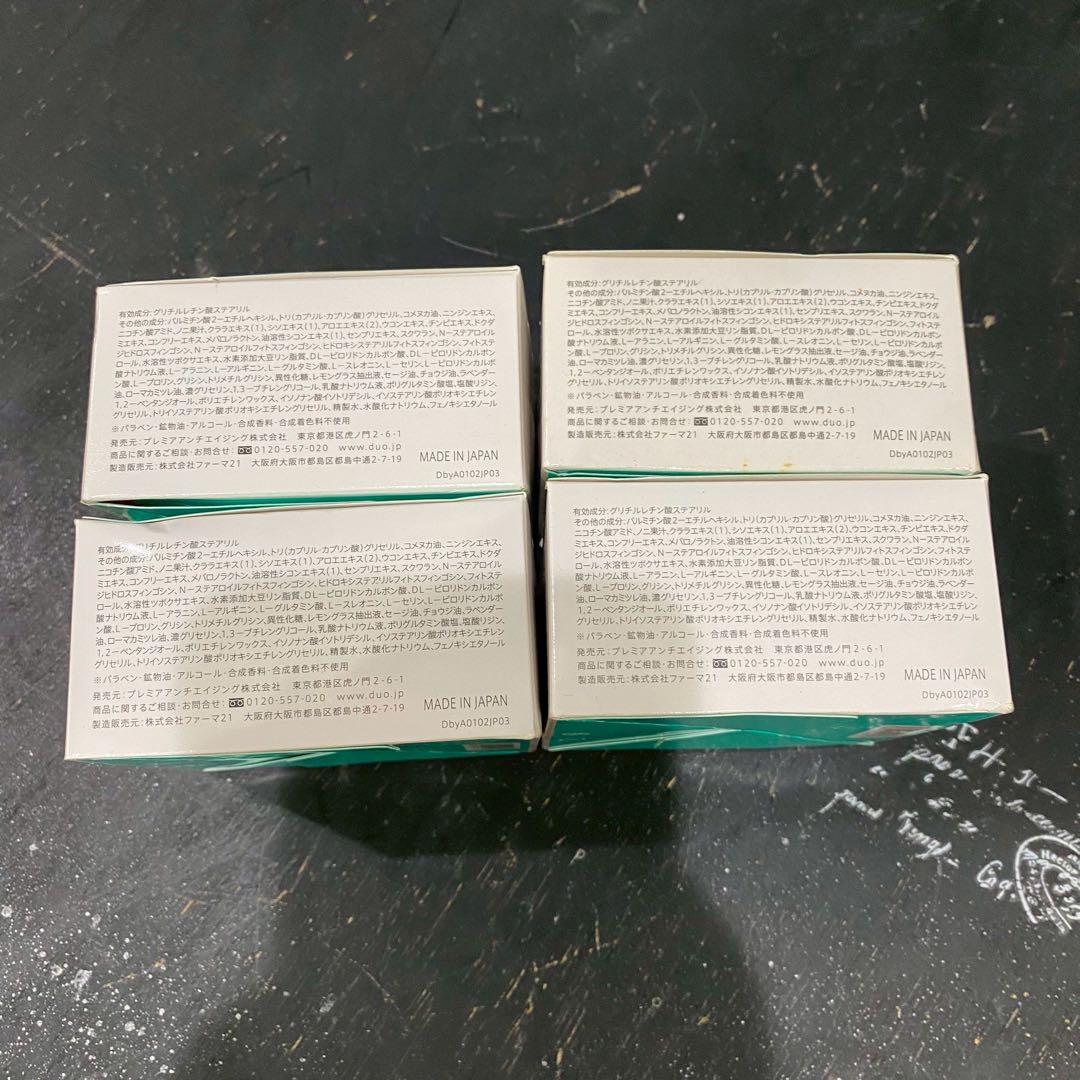 有効成分:グリチルレチン酸ステアリル
その他の成分:パルミチン酸2−エチルヘキシル、トリ(カプリル・カプリン酸)グリセリル、コメヌカ油、ニンジンエキス、
ニコチン酸アミド、ノニ果汁、クララエキス(1)、シソエキス(1)、アロエエキス(2)、ウコンエキス、チンピエキス、ドクダ
ミエキス、コンフリーエキス、メバロノラクトン、油溶性シコンエキス(1)、センブリエキス、スクワラン、N−ステアロイル
ジヒドロスフィンゴシン、N−ステアロイルフィトスフィンゴシン、ヒドロキシステアリルフィトスフィンゴシン、フィトステ
ロール、水溶性ツボクサエキス、水素添加大豆リン脂質、DL−ピロリドンカルボン酸、DL−ピロリドンカルボン
酸ナトリウム液、L−アラニン、L−アルギニン、L−グルタミン酸、L−スレオニン、L−セリン、L−ピロリドンカルボ
ン酸、L−プロリン、グリシン、トリメチルグリシン、異性化糖、レモングラス抽出液、セージ油、チョウジ油、ラベンダー
油、ローマカミツレ油、濃グリセリン、1,3−ブチレングリコール、乳酸ナトリウム液、ポリグルタミン酸塩、塩酸リジン、
1,2−ペンタンジオール、ポリエチレンワックス、イソノナン酸イソトリデシル、イソステアリン酸ポリオキシエチレン
グリセリル、トリイソステアリン酸ポリオキシエチレングリセリル、精製水、水酸化ナトリウム、フェノキシエタノール
※パラベン・鉱物油・アルコール・合成香料・合成着色料不使用
発売元:プレミアアンチエイジング株式会社 東京都港区虎ノ門2-6-1
商品に関するご相談・お問合せ:0120-557-020 www.duo.jp
製造販売元:株式会社ファーマ21 大阪府大阪市都島区都島中通2-7-19
MADE IN JAPAN
DbyA0102JP03
有効成分:グリチルレチン酸ステアリル
その他の成分:パルミチン酸2−エチルヘキシル、トリ(カプリル・カプリン酸)グリセリル、コメヌカ油、ニンジンエキス、
ニコチン酸アミド、ノニ果汁、クララエキス(1)、シソエキス(1)、アロエエキス(2)、ウコンエキス、チンピエキス、ドクダ
ミエキス、コンフリーエキス、メバロノラクトン、油溶性シコンエキス(1)、センブリエキス、スクワラン、N−ステアロイル
ジヒドロスフィンゴシン、N−ステアロイルフィトスフィンゴシン、ヒドロキシステアリルフィトスフィンゴシン、フィトステ
ロール、水溶性ツボクサエキス、水素添加大豆リン脂質、DL−ピロリドンカルボン酸、DL−ピロリドンカルボン
酸ナトリウム液、L−アラニン、L−アルギニン、L−グルタミン酸、L−スレオニン、L−セリン、L−ピロリドンカルボ
ン酸、L−プロリン、グリシン、トリメチルグリシン、異性化糖、レモングラス抽出液、セージ油、チョウジ油、ラベンダー
油、ローマカミツレ油、濃グリセリン、1,3−ブチレングリコール、乳酸ナトリウム液、ポリグルタミン酸塩、塩酸リジン、
1,2−ペンタンジオール、ポリエチレンワックス、イソノナン酸イソトリデシル、イソステアリン酸ポリオキシエチレン
グリセリル、トリイソステアリン酸ポリオキシエチレングリセリル、精製水、水酸化ナトリウム、フェノキシエタノール
※パラベン・鉱物油・アルコール・合成香料・合成着色料不使用
発売元:プレミアアンチエイジング株式会社 東京都港区虎ノ門2-6-1
商品に関するご相談・お問合せ:0120-557-020 www.duo.jp
製造販売元:株式会社ファーマ21 大阪府大阪市都島区都島中通2-7-19
MADE IN JAPAN
DbyA0102JP03
有効成分:グリチルレチン酸ステアリル
その他の成分:パルミチン酸2−エチルヘキシル、トリ(カプリル・カプリン酸)グリセリル、コメヌカ油、ニンジンエキス、
ニコチン酸アミド、ノニ果汁、クララエキス(1)、シソエキス(1)、アロエエキス(2)、ウコンエキス、チンピエキス、ドクダ
ミエキス、コンフリーエキス、メバロノラクトン、油溶性シコンエキス(1)、センブリエキス、スクワラン、N−ステアロイル
ジヒドロスフィンゴシン、N−ステアロイルフィトスフィンゴシン、ヒドロキシステアリルフィトスフィンゴシン、フィトステ
ロール、水溶性ツボクサエキス、水素添加大豆リン脂質、DL−ピロリドンカルボン酸、DL−ピロリドンカルボン
酸ナトリウム液、L−アラニン、L−アルギニン、L−グルタミン酸、L−スレオニン、L−セリン、L−ピロリドンカルボ
ン酸、L−プロリン、グリシン、トリメチルグリシン、異性化糖、レモングラス抽出液、セージ油、チョウジ油、ラベンダー
油、ローマカミツレ油、濃グリセリン、1,3−ブチレングリコール、乳酸ナトリウム液、ポリグルタミン酸塩、塩酸リジン、
1,2−ペンタンジオール、ポリエチレンワックス、イソノナン酸イソトリデシル、イソステアリン酸ポリオキシエチレン
グリセリル、トリイソステアリン酸ポリオキシエチレングリセリル、精製水、水酸化ナトリウム、フェノキシエタノール
※パラベン・鉱物油・アルコール・合成香料・合成着色料不使用
発売元:プレミアアンチエイジング株式会社 東京都港区虎ノ門2-6-1
商品に関するご相談・お問合せ:0120-557-020 www.duo.jp
製造販売元:株式会社ファーマ21 大阪府大阪市都島区都島中通2-7-19
MADE IN JAPAN
DbyA0102JP03
有効成分:グリチルレチン酸ステアリル
その他の成分:パルミチン酸2−エチルヘキシル、トリ(カプリル・カプリン酸)グリセリル、コメヌカ油、ニンジンエキス、
ニコチン酸アミド、ノニ果汁、クララエキス(1)、シソエキス(1)、アロエエキス(2)、ウコンエキス、チンピエキス、ドクダ
ミエキス、コンフリーエキス、メバロノラクトン、油溶性シコンエキス(1)、センブリエキス、スクワラン、N−ステアロイル
ジヒドロスフィンゴシン、N−ステアロイルフィトスフィンゴシン、ヒドロキシステアリルフィトスフィンゴシン、フィトステ
ロール、水溶性ツボクサエキス、水素添加大豆リン脂質、DL−ピロリドンカルボン酸、DL−ピロリドンカルボン
酸ナトリウム液、L−アラニン、L−アルギニン、L−グルタミン酸、L−スレオニン、L−セリン、L−ピロリドンカルボ
ン酸、L−プロリン、グリシン、トリメチルグリシン、異性化糖、レモングラス抽出液、セージ油、チョウジ油、ラベンダー
油、ローマカミツレ油、濃グリセリン、1,3−ブチレングリコール、乳酸ナトリウム液、ポリグルタミン酸塩、塩酸リジン、
1,2−ペンタンジオール、ポリエチレンワックス、イソノナン酸イソトリデシル、イソステアリン酸ポリオキシエチレン
グリセリル、トリイソステアリン酸ポリオキシエチレングリセリル、精製水、水酸化ナトリウム、フェノキシエタノール
※パラベン・鉱物油・アルコール・合成香料・合成着色料不使用
発売元:プレミアアンチエイジング株式会社 東京都港区虎ノ門2-6-1
商品に関するご相談・お問合せ:0120-557-020 www.duo.jp
製造販売元:株式会社ファーマ21 大阪府大阪市都島区都島中通2-7-19
MADE IN JAPAN
DbyA0102JP03